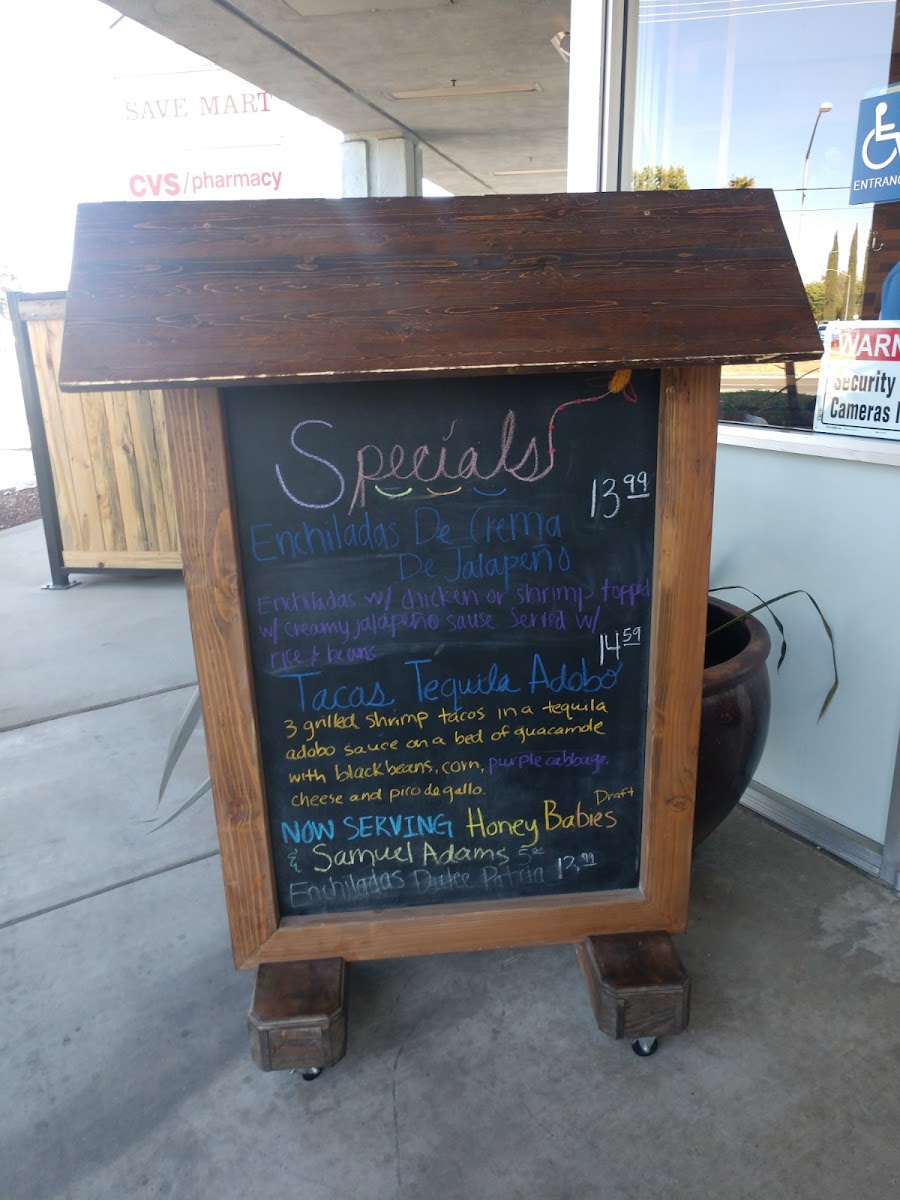 SAVE MART
CVS/pharmacy
ENTRANC
WARN
Security
Cameras I
Specials
13.99
Enchiladas De Crema
De Jalapeño
Enchiladas w/ chicken or shrimp topped
w/ creamy jalapeño sause served w/
rice & beans
14.59
Tacas Tequila Adobo
3 grilled shrimp tacos in a tequila
adobo sauce on a bed of guacamole
with black beans, corn, purple cabbage,
cheese and pico de gallo.
Draft
NOW SERVING Honey Babies
& Samuel Adams
Enchiladas Dulce Patria 13.99